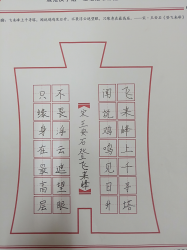 飞来峰上千寻塔，闻说鸡鸣见日升。不畏浮云遮望眼，只缘身在最高层。——宋·王安石《登飞来峰》
飞来峰上千寻塔
闻说鸡鸣见日升
【宋 王安石 登飞来峰】
不畏浮云遮望眼
只缘身在最高层